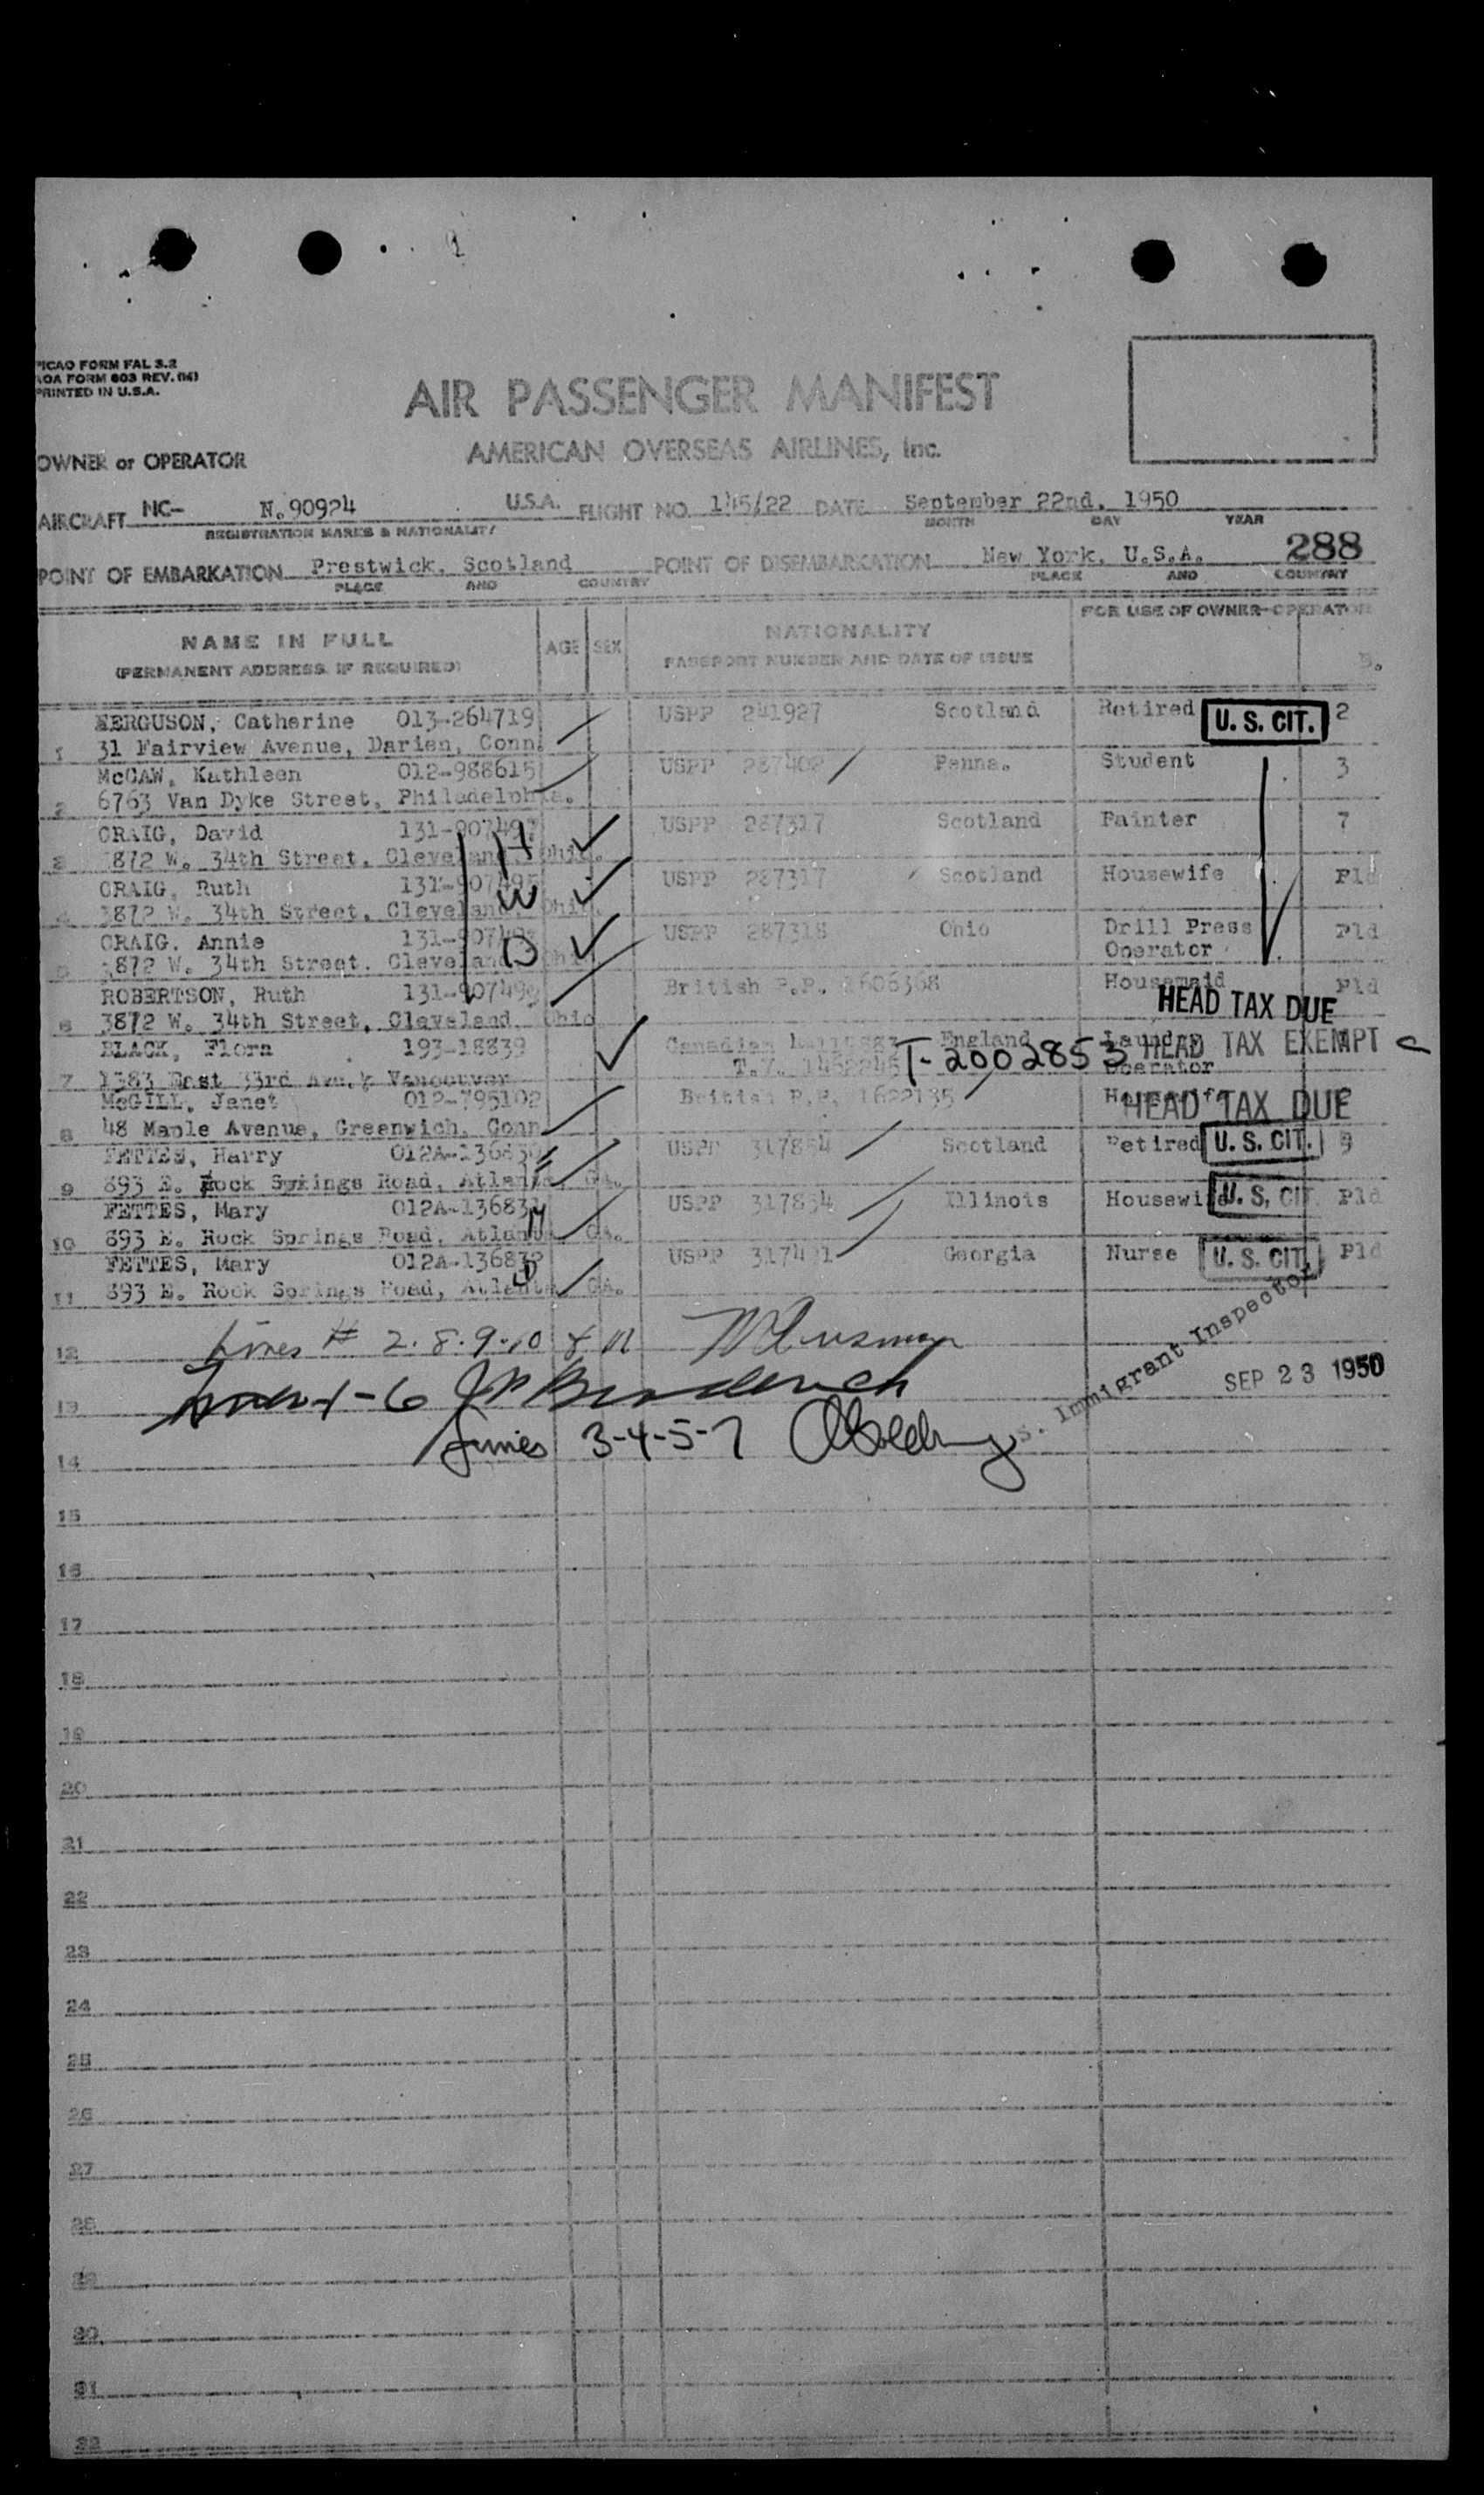 ICAO FORM FAL 3.2
AOA FORM 603 REV. (14)
PRINTED IN U.S.A.
AIR PASSENGER MANIFEST
OWNER or OPERATOR AMERICAN OVERSEAS AIRLINES, Inc.
AIRCRAFT NC- N.90924 U.S.A. FLIGHT NO. 145/22 DATE September 22nd, 1950
REGISTRATION MARKS & NATIONALITY MONTH DAY YEAR
POINT OF EMBARKATION Prestwick, Scotland POINT OF DISEMBARKATION New York, U.S.A. 288
PLACE AND COUNTRY PLACE AND COUNTRY
NAME IN FULL AGE SEX NATIONALITY FOR USE OF OWNER-OPERATOR
(PERMANENT ADDRESS IF REQUIRED) PASSPORT NUMBER AND DATE OF ISSUE B.
FERGUSON, Catherine 013-264719 USPP 241927 Scotland Retired U. S. CIT. 2
1 31 Fairview Avenue, Darien, Conn.
McCAW, Kathleen 012-988615 USPP 287402 Penna. Student 3
2 6763 Van Dyke Street, Philadelphia.
CRAIG, David 131-907497 H USPP 287317 Scotland Painter 7
3 3872 W. 34th Street, Cleveland, Ohio.
CRAIG, Ruth W USPP 287317 Scotland Housewife Fld
4 3872 W. 34th Street, Cleveland, Ohio.
CRAIG, Annie D USPP 287318 Ohio Drill Press Fld
5 3872 W. 34th Street. Cleveland Ohio Operator
ROBERTSON, Ruth British P.P. 1606368 Housemaid Fld
HEAD TAX DUE
6 3872 W. 34th Street, Cleveland, Ohio
BLACK, Flora 193-18839 Canadian England Laundry HEAD TAX EXEMPT
T-2002853
7 1383 East 33rd Ave., Vancouver T.V. Operator
McGILL, Janet 012-795102 British P.P. 1622135 Housewife HEAD TAX DUE
8 48 Maple Avenue, Greenwich, Conn
FETTES, Harry USPP 317854 Scotland Retired U. S. CIT. 9
9 893 E. Rock Springs Road, Atlanta, GA.
FETTES, Mary USPP 317854 Illinois Housewife U. S. CIT Fld
10 893 E. Rock Springs Road, Atlanta, GA.
FETTES, Mary 012A-136832 USPP Georgia Nurse U. S. CIT. Fld
11 893 E. Rock Springs Road, Atlanta, GA.
12 Lines # 2-8-9-10 & 11
S. Immigrant Inspector
SEP 23 1950
13 Lines 1-6
14 Lines 3-4-5-7
15
16
17
18
19
20
21
22
23
24
25
26
27
28
29
30
31
32